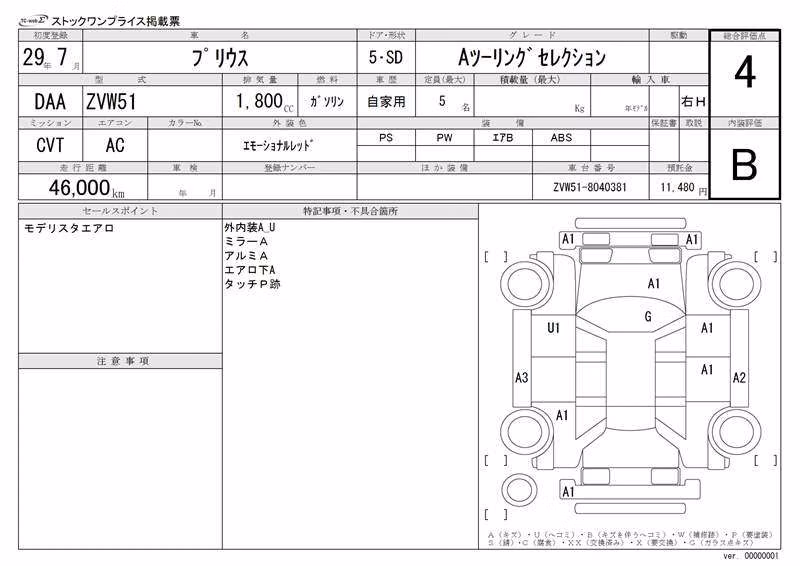 TC-webΣ ストックワンプライス掲載票
初度登録 車名 ドア・形状 グレード 駆動 総合評価点
29年 7月 プリウス 5・SD Aツーリングセレクション 4
型式 排気量 燃料 車歴 定員(最大) 積載量(最大) 輸入車
DAA ZVW51 1,800CC ガソリン 自家用 5名 Kg 年モデル 右H
ミッション エアコン カラーNo. 外装色 装備 保証書 取説 内装評価
CVT AC エモーショナルレッド PS PW エアB ABS B
走行距離 車検 登録ナンバー ほか装備 車台番号 預託金
46,000km 年 月 ZVW51-8040381 11,480円
セールスポイント
モデリスタエアロ
注意事項
特記事項・不具合箇所
外内装A_U
ミラーA
アルミA
エアロ下A
タッチP跡
A1 A1
[ ] [ ]
A1
G
U1 A1
A1
A3 A2
A1
[ ] [ ]
A1
[ ]
A(キズ)・U(ヘコミ)・B(キズを伴うヘコミ)・W(補修跡)・P(要塗装)
S(錆)・C(腐食)・XX(交換済み)・X(要交換)・G(ガラス点キズ)
ver. 00000001